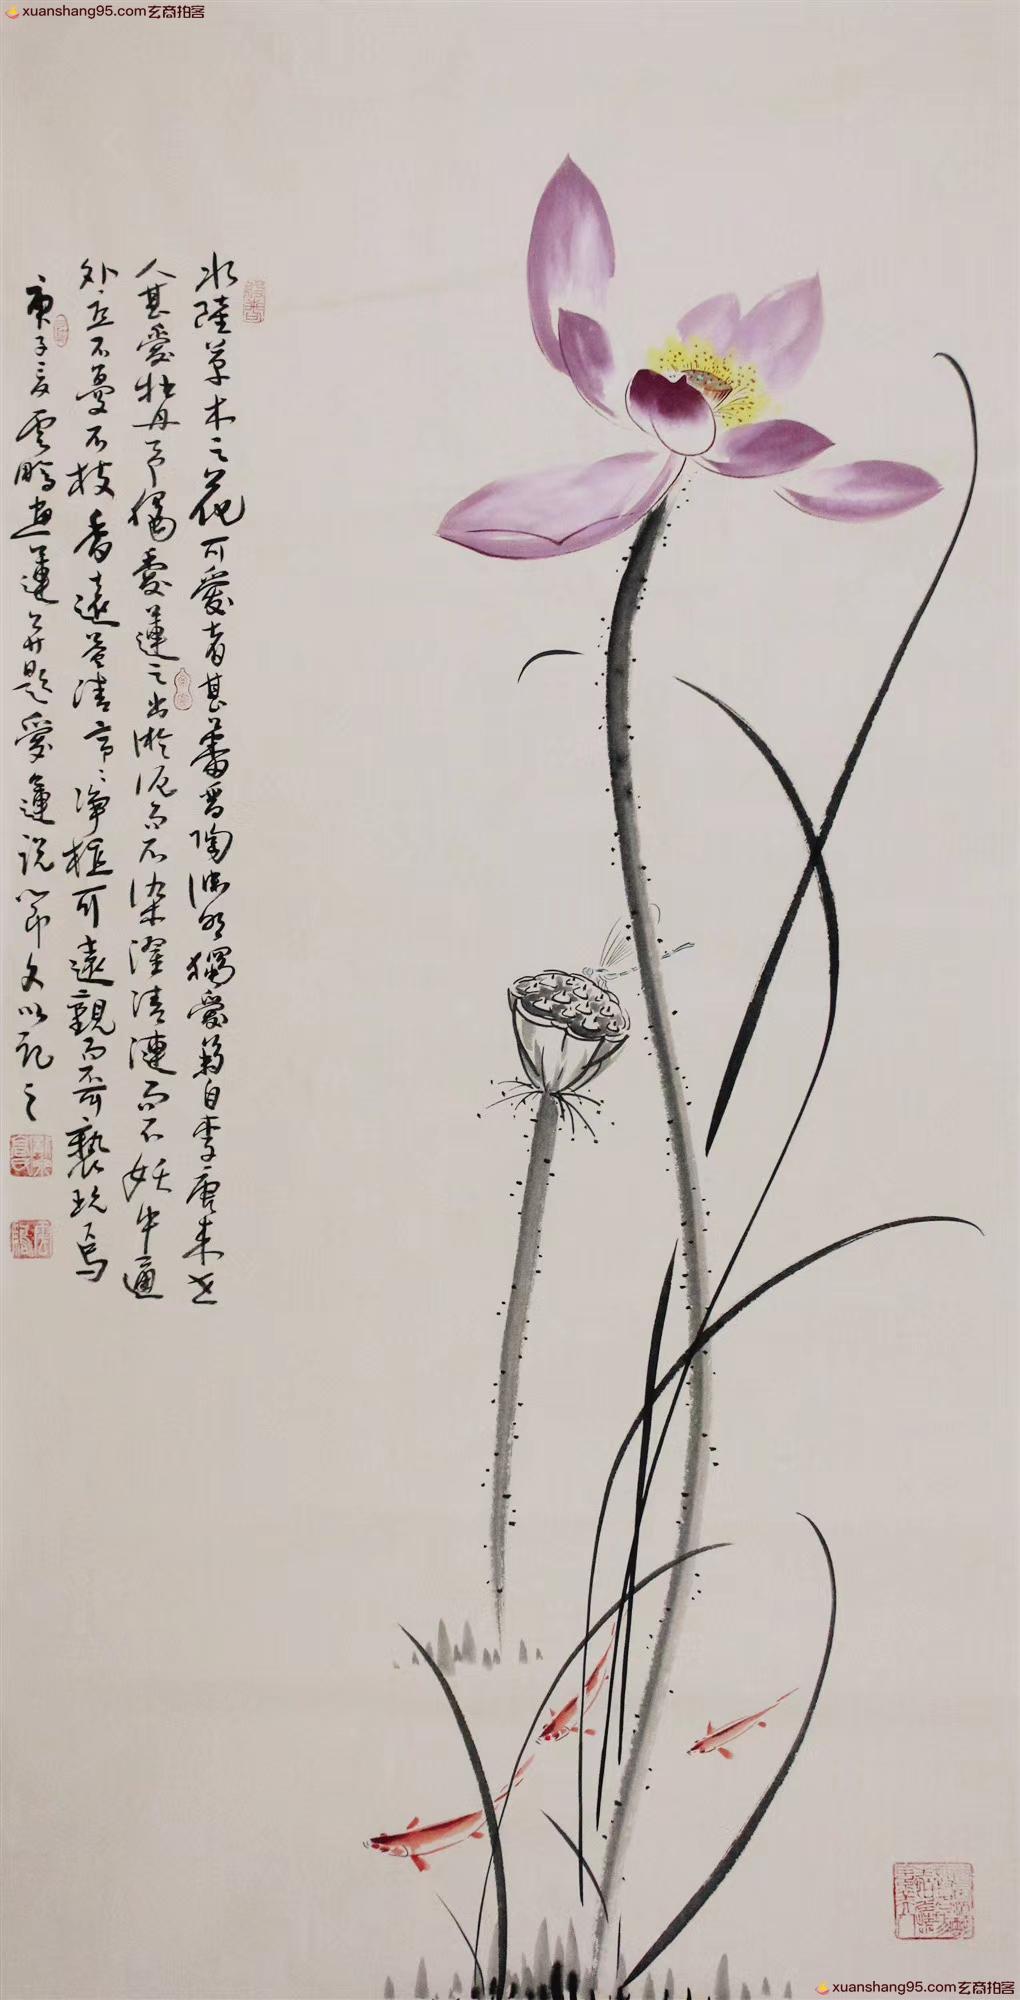 xuanshang95.com玄商拍客
水陸草木之花可愛者甚蕃晋陶渊明獨愛菊自李唐来世
人甚愛牡丹予獨愛蓮之出淤泥而不染濯清漣而不妖中通
外直不蔓不枝香遠益清亭亭净植可遠觀而不可褻玩焉
庚子夏雲鵬畫蓮并題愛蓮说節文以记之
xuanshang95.com玄商拍客